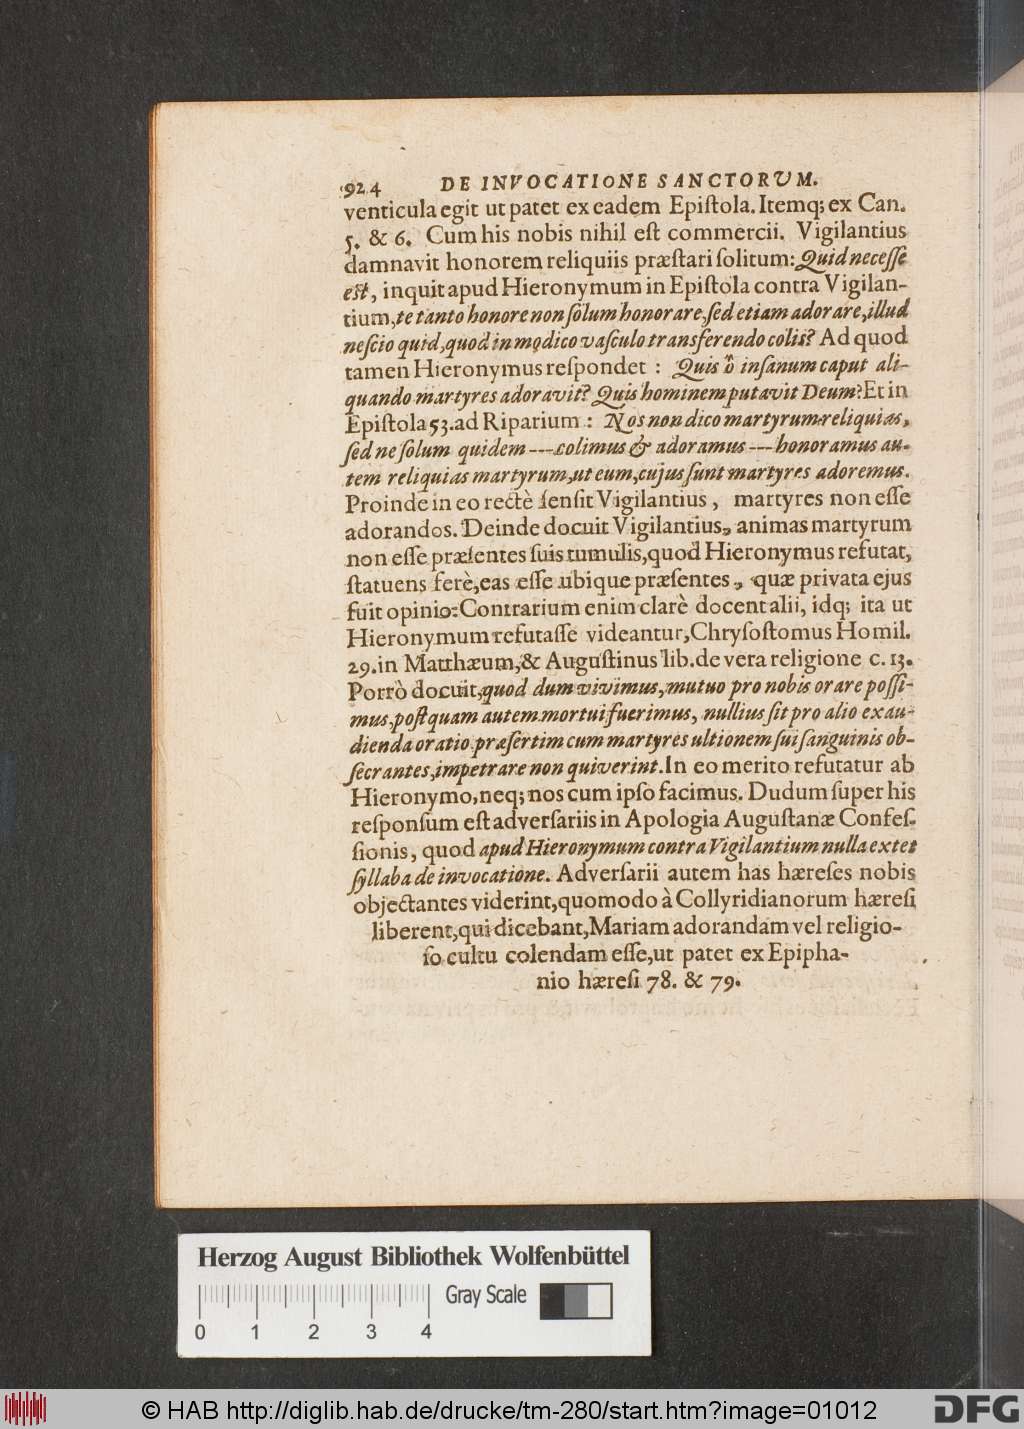 924 DE INVOCATIONE SANCTORVM.
venticula egit ut patet ex eadem Epiſtola. Itemq; ex Can.
5. & 6. Cum his nobis nihil eſt commercii. Vigilantius
damnavit honorem reliquiis præſtari ſolitum: Quid neceſſe
eſt, inquit apud Hieronymum in Epiſtola contra Vigilan-
tium, te tanto honore non ſolum honorare, ſed etiam adorare, illud
neſcio quid, quod in modico vaſculo transferendo colis? Ad quod
tamen Hieronymus reſpondet : Quis ô inſanum caput ali-
quando martyres adoravit? Quis hominem putavit Deum? Et in
Epiſtola 53. ad Riparium : Nos non dico martyrum reliquias,
ſed ne ſolum quidem --- colimus & adoramus --- honoramus au-
tem reliquias martyrum, ut eum, cujus ſunt martyres adoremus.
Proinde in eo rectè ſenſit Vigilantius, martyres non eſſe
adorandos. Deinde docuit Vigilantius, animas martyrum
non eſſe præſentes ſuis tumulis, quod Hieronymus refutat,
ſtatuens ferè, eas eſſe ubique præſentes, quæ privata ejus
fuit opinio: Contrarium enim clarè docent alii, idq; ita ut
Hieronymum refutaſſe videantur, Chryſoſtomus Homil.
29. in Matthæum, & Auguſtinus lib. de vera religione c. 13.
Porrò docuit, quod dum vivimus, mutuo pro nobis orare poſſi-
mus, poſtquam autem mortui fuerimus, nullius ſit pro alio exau-
dienda oratio præſertim cum martyres ultionem ſui ſanguinis ob-
ſecrantes, impetrare non quiverint. In eo merito refutatur ab
Hieronymo, neq; nos cum ipſo facimus. Dudum ſuper his
reſponſum eſt adverſariis in Apologia Auguſtanæ Confeſ-
ſionis, quod apud Hieronymum contra Vigilantium nulla extet
ſyllaba de invocatione. Adverſarii autem has hæreſes nobis
objectantes viderint, quomodo à Collyridianorum hæreſi
liberent, qui dicebant, Mariam adorandam vel religio-
ſo cultu colendam eſſe, ut patet ex Epipha-
nio hæreſi 78. & 79.
Herzog August Bibliothek Wolfenbüttel
Gray Scale
0 1 2 3 4
© HAB http://diglib.hab.de/drucke/tm-280/start.htm?image=01012
DFG